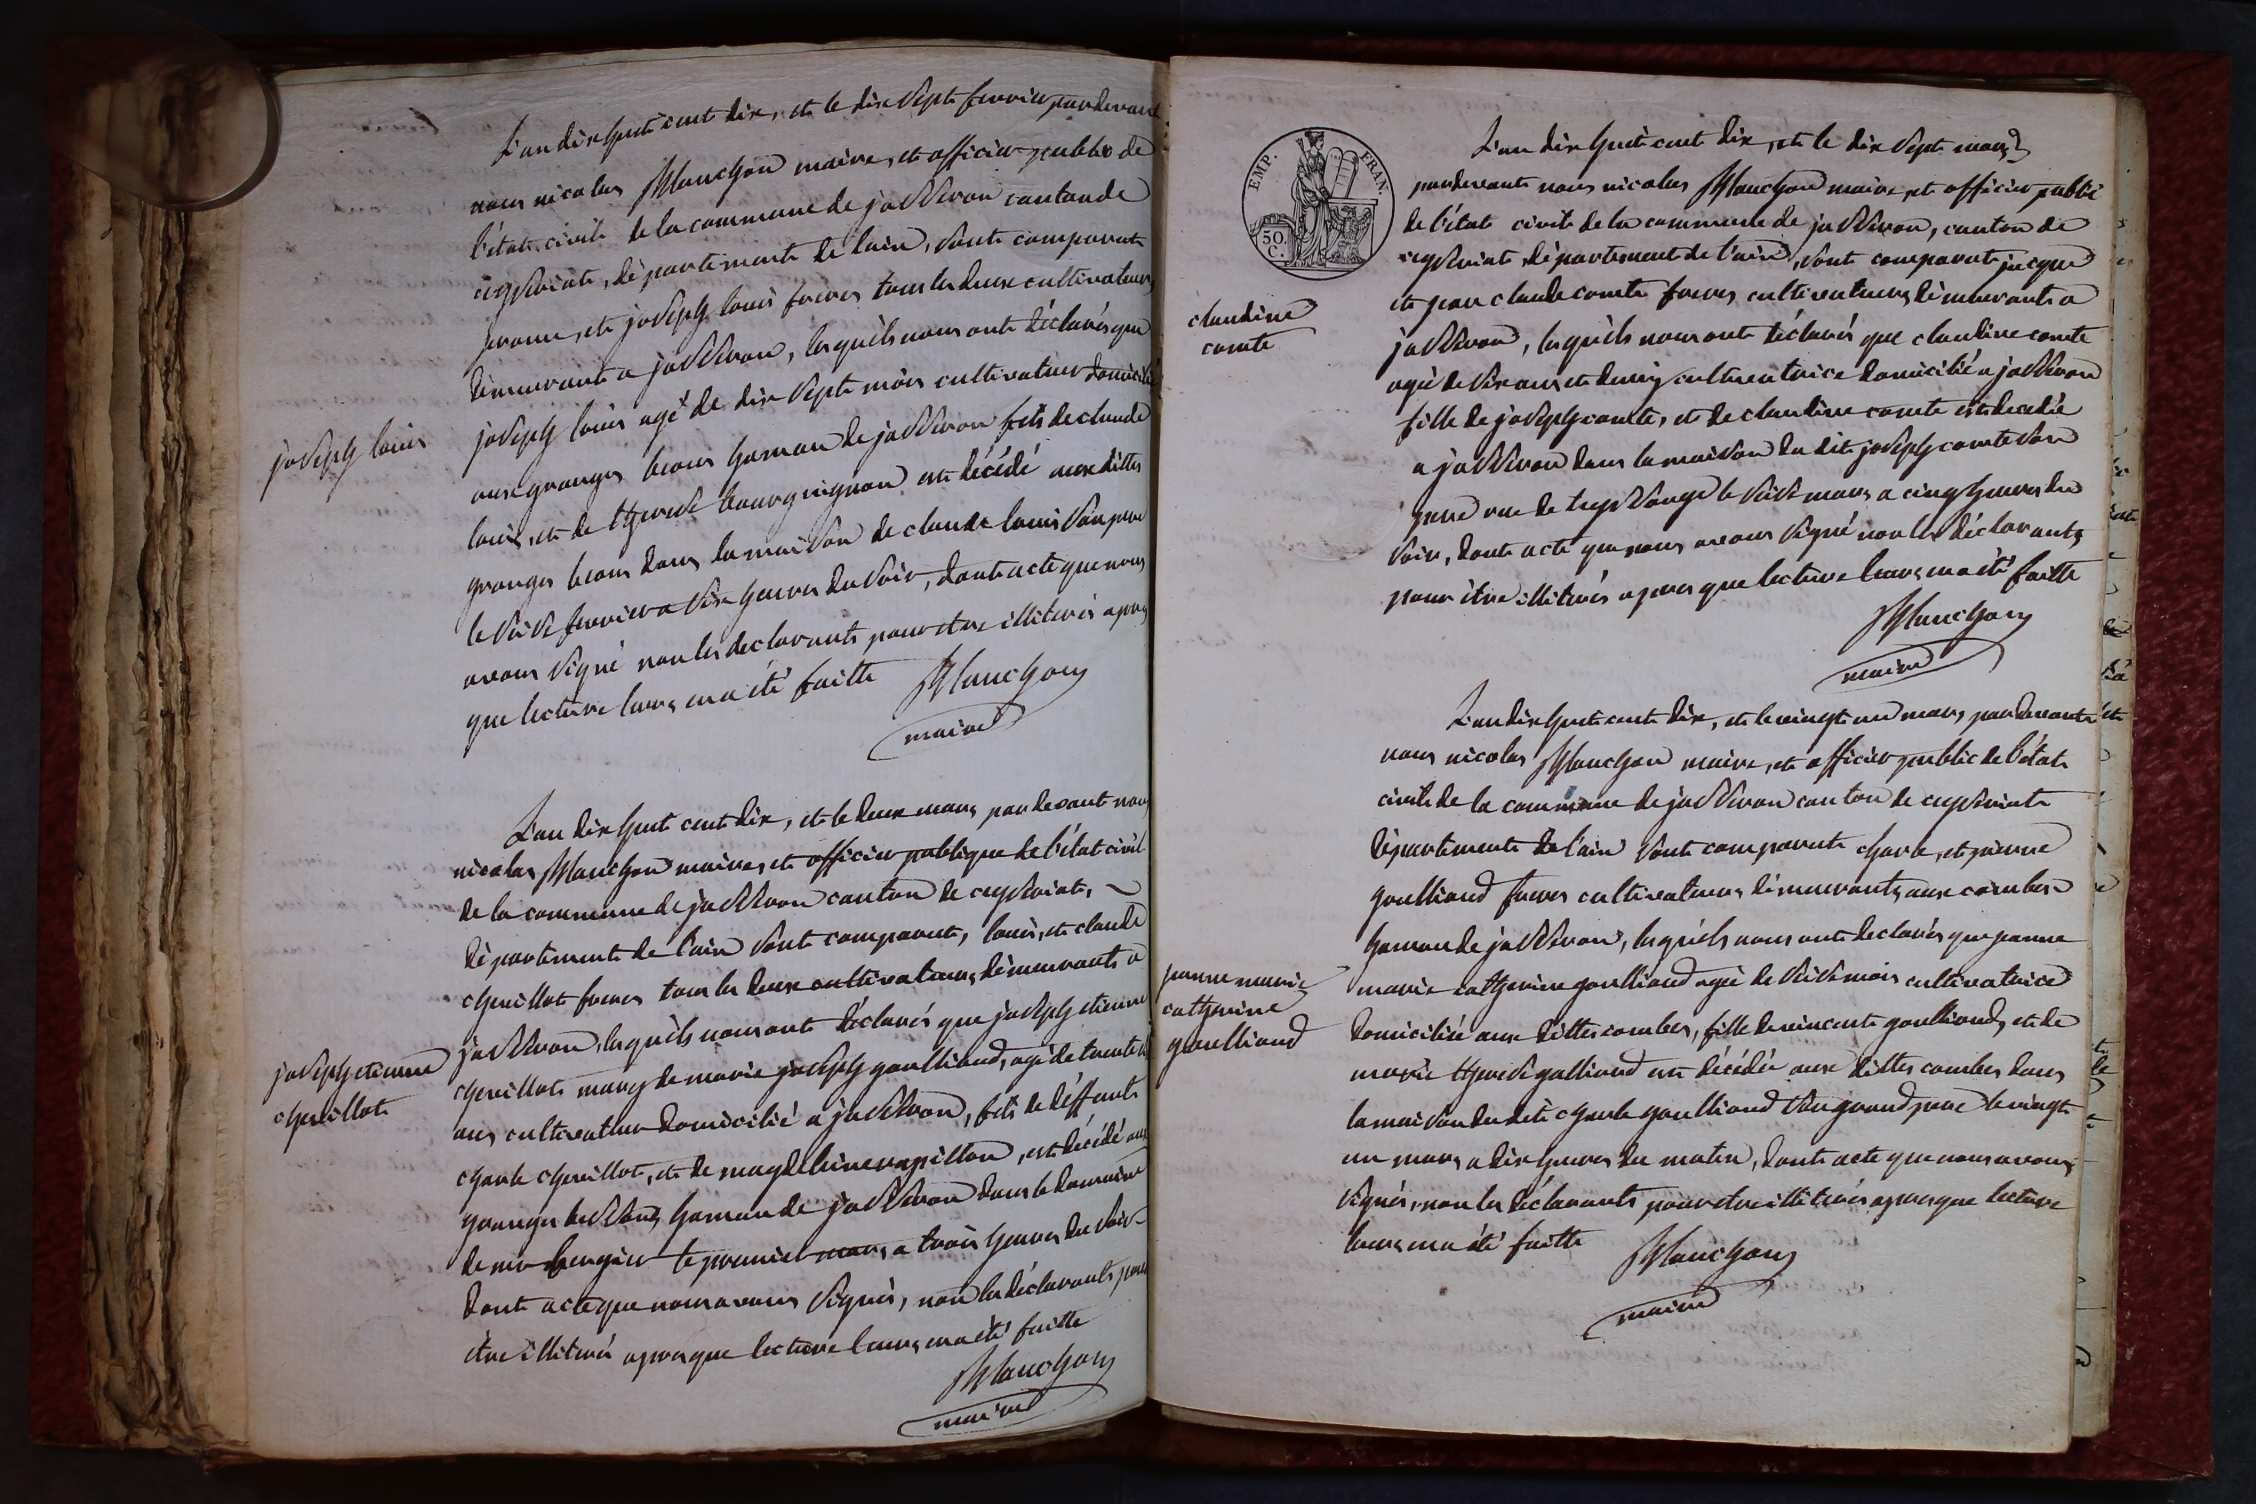 L'an dix huit cent dix, et le dix sept fevrier pardevant
nous nicolas Blanchon maire, et officier public de
l'état civil de la commune de jasseron canton de
ceyseriat, département de lain, sont comparut
jerome, et joseph louis freres tous les deux cultivateurs
démeurants a jasseron, lesquels nous ont déclarés que
joseph louis
joseph louis agé de dix sept mois cultivateur domicilié
aux granges beons hamau de jasseron fils de claude
louis, et de therese bourguignon est décédé aux dittes
granges beons dans la maison de claude louis son pere
le seise fevrier a six heures du soir, dont acte que nous
avons signé non les declarants pour etre illiterés apres
que lecture leurs en a été faitte
Blanchon
maire
L'an dix huit cent dix, et le deux mars pardevant nous
nicolas Blanchon maire, et officier publique de l'état civil
de la commune de jasseron canton de ceyseriat,
département de l'ain sont comparut, louis, et claude
chevillot freres tous les deux cultivateurs démeurants a
jasseron, lesquels nous ont déclarés que joseph etienne
joseph etienne
chevillot
chevillot marey de marie joseph goulliaud, agé de trente
ans cultivateur domicilié a jasseron, fils de déffunts
charle chevillot, et de magdeleine vapillon, est décédé aux
granges hamau de jasseron dans le domaine
de mr bergier le premier mars a trois heures du soir
dont acte que nous avons signés, non les déclarants pour
être illiterés apres que lecture leurs en a été faitte
Blanchon
maire
EMP. FRAN.
50.
C.
L'an dix huit cent dix, et le dix sept mars
pardevant nous nicolas Blanchon maire, et officier public
de l'état civil de la commune de jasseron, canton de
ceyseriat, département de l'ain, sont comparut jacque
et jean claude comte freres, cultivateurs démeurants a
claudine
comte
jasseron, lesquels nous ont déclarés que claudine comte
agé de six ans et demy cultivatrice domicilié a jasseron
fille de joseph comte, et de claudine comte est decedée
a jasseron dans la maison du dit joseph comte son
pere rue de le seise mars a cinq heures du
soir, dont acte que nous avons signé non les déclarants
pour être illiterés apres que lecture leurs en a été faitte
Blanchon
maire
L'an dix huit cent dix, et le vingt un mars, pardevant
nous nicolas Blanchon maire, et officier public de l'état
civil de la commune de jasseron canton de ceyseriat
département de l'ain sont comparut charle, et pierre
goulliaud freres cultivateurs démeurants aux combes
hamau de jasseron, lesquels nous ont declarés que jeanne
jeanne marie
catherine
goulliaud
marie catherine goulliaud agée de seise mois cultivatrice
domiciliée aux dittes combes, fille de vincent goulliaud, et de
marie therese galliaud est décédée aux dittes combes dans
la maison du dit charle goulliaud son grand pere le vingt
un mars a dix heures du matin, dont acte que nous avons
signés, non les déclarants pour etre illiterés apres que lecture
leurs en a été faitte
Blanchon
maire